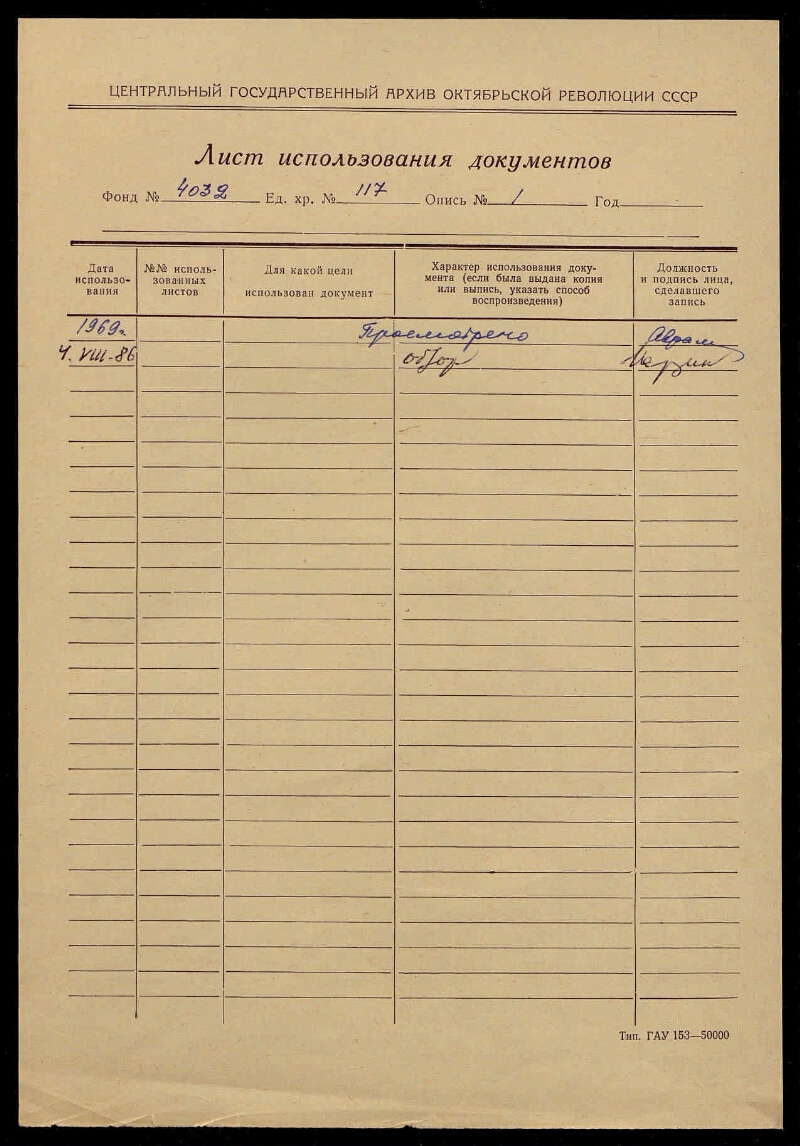 ЦЕНТРАЛЬНЫЙ ГОСУДАРСТВЕННЫЙ АРХИВ ОКТЯБРЬСКОЙ РЕВОЛЮЦИИ СССР
Лист использования документов
Фонд № 4032 Ед. хр. № 117 Опись № 1 Год
Дата использо-вания
№№ исполь-зованных листов
Для какой цели использован документ
Характер использования доку-мента (если была выдана копия или выпись, указать способ воспроизведения)
Должность и подпись лица, сделавшего запись
1969г. Просмотрено
4. VIII-86 обзор
Тип. ГАУ 153—50000